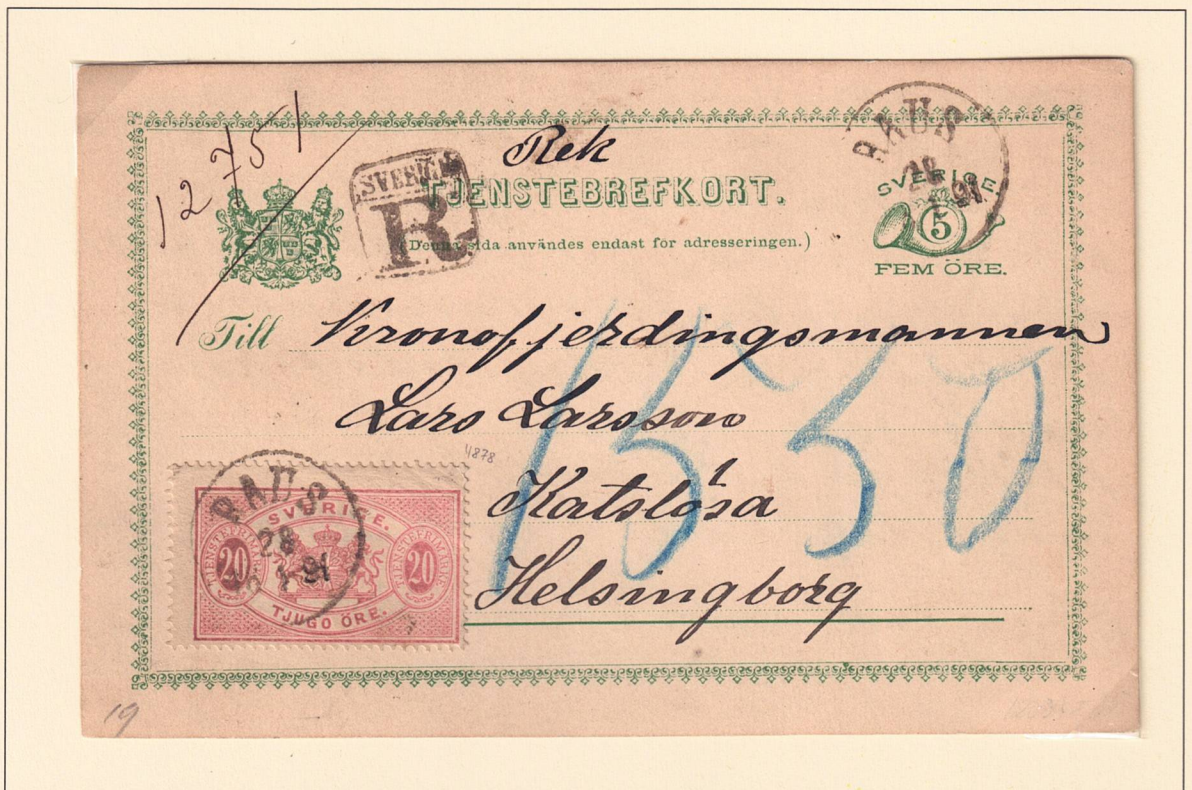 12751
Rek
SVERIGE
R
TJENSTEBREFKORT.
(Denna sida användes endast för adresseringen.)
RAUS
28
91
SVERIGE
5
FEM ÖRE.
Till Kronofjerdingsmannen
Lars Larsson
4878
Katslösa
Helsingborg
1530
RAUS
28
91
SVERIGE.
TJENSTEFRIMÄRKE
20
20
TJENSTEFRIMÄRKE
TJUGO ÖRE.
19